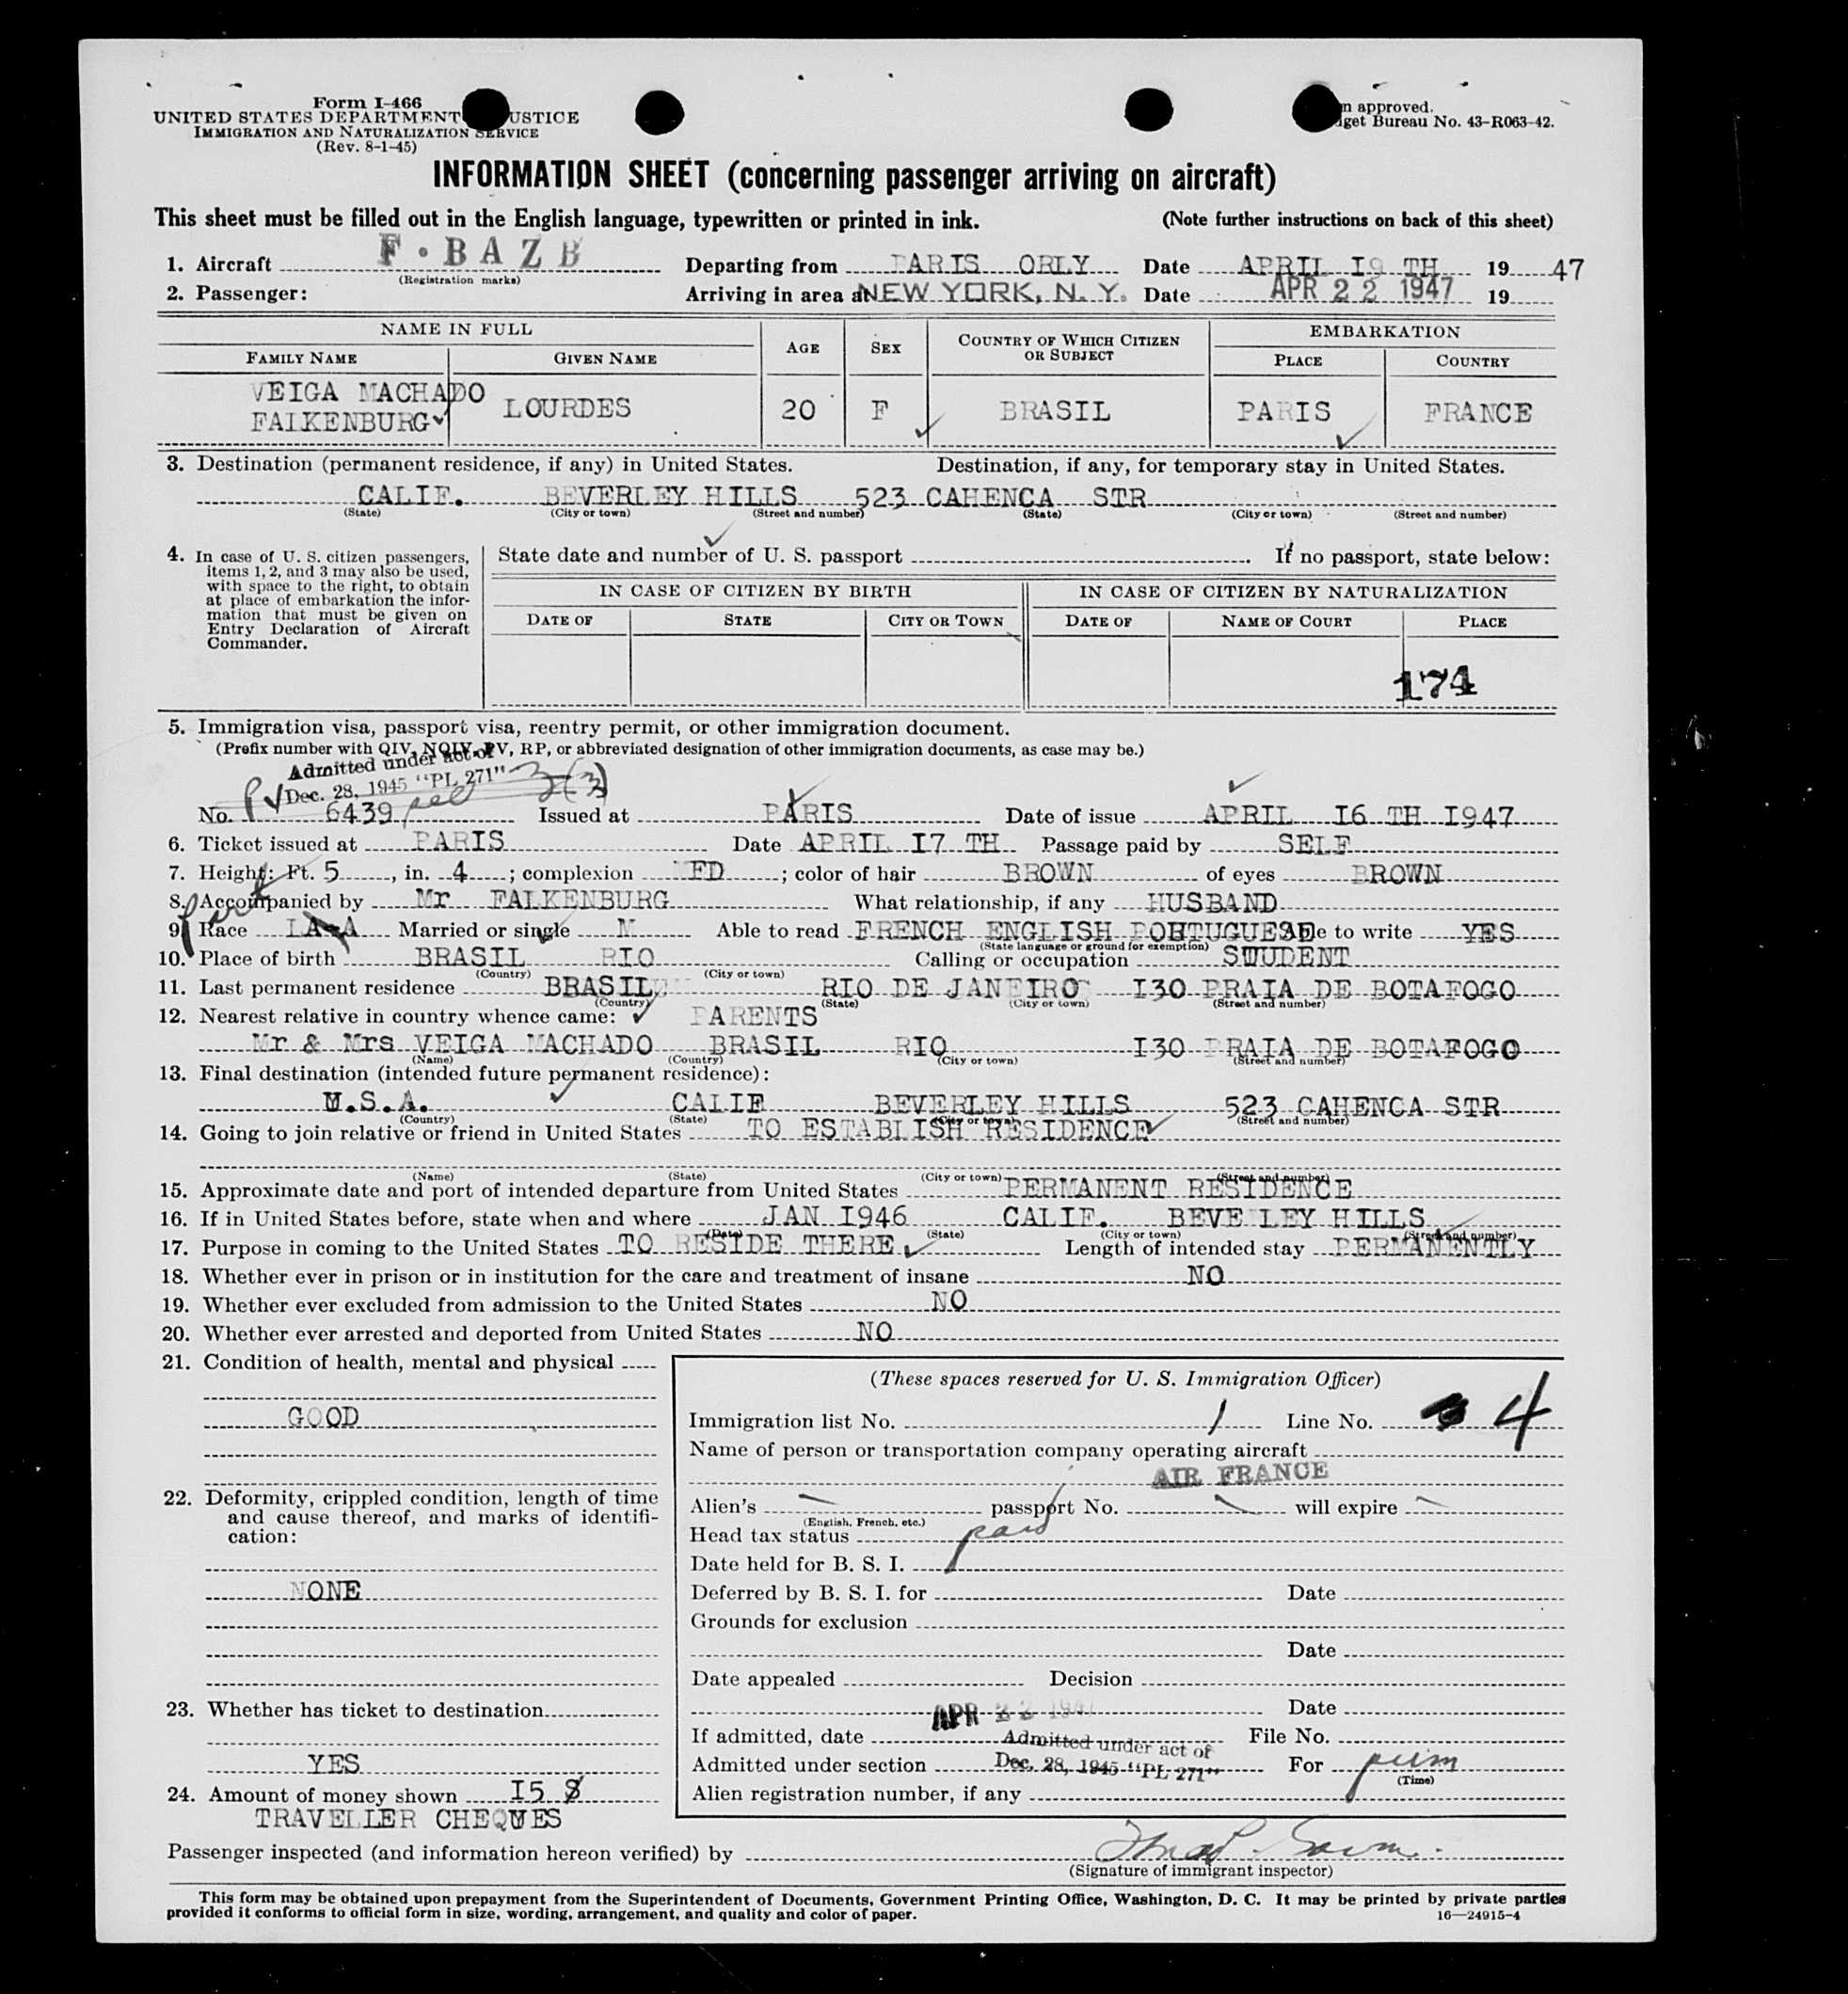 Form I-466
UNITED STATES DEPARTMENT USTICE
IMMIGRATION AND NATURALIZATION SERVICE
(Rev. 8-1-45)
n approved.
get Bureau No. 43-R063-42.
INFORMATION SHEET (concerning passenger arriving on aircraft)
This sheet must be filled out in the English language, typewritten or printed in ink. (Note further instructions on back of this sheet)
1. Aircraft F·BAZB Departing from PARIS ORLY Date APRIL I9 TH 19 47
(Registration marks)
2. Passenger: Arriving in area at NEW YORK, N. Y. Date APR 22 1947 19
NAME IN FULL AGE SEX COUNTRY OF WHICH CITIZEN OR SUBJECT EMBARKATION
FAMILY NAME GIVEN NAME PLACE COUNTRY
VEIGA MACHADO
FALKENBURG LOURDES 20 F BRASIL PARIS FRANCE
3. Destination (permanent residence, if any) in United States. Destination, if any, for temporary stay in United States.
CALIF. BEVERLEY HILLS 523 CAHENCA STR
(State) (City or town) (Street and number) (State) (City or town) (Street and number)
4. In case of U. S. citizen passengers, items 1, 2, and 3 may also be used, with space to the right, to obtain at place of embarkation the information that must be given on Entry Declaration of Aircraft Commander.
State date and number of U. S. passport . If no passport, state below:
IN CASE OF CITIZEN BY BIRTH IN CASE OF CITIZEN BY NATURALIZATION
DATE OF STATE CITY OR TOWN DATE OF NAME OF COURT PLACE
174
5. Immigration visa, passport visa, reentry permit, or other immigration document.
(Prefix number with QIV, NQIV, PV, RP, or abbreviated designation of other immigration documents, as case may be.)
Admitted under act of
Dec. 28, 1945 "PL 271" 3(3)
PV
No. 6439 Issued at PARIS Date of issue APRIL I6 TH I947
6. Ticket issued at PARIS Date APRIL I7 TH Passage paid by SELF
7. Height: Ft. 5, in. 4; complexion MED; color of hair BROWN of eyes BROWN
8. Accompanied by Mr FALKENBURG What relationship, if any HUSBAND
9. Race Married or single M Able to read FRENCH ENGLISH PORTUGUESE Able to write YES
(State language or ground for exemption)
10. Place of birth BRASIL RIO Calling or occupation SWUDENT
(Country) (City or town)
11. Last permanent residence BRASIL RIO DE JANEIRO I30 PRAIA DE BOTAFOGO
(Country) (State) (City or town) (Street and number)
12. Nearest relative in country whence came: PARENTS
Mr & Mrs VEIGA MACHADO BRASIL RIO I30 PRAIA DE BOTAFOGO
(Name) (Country) (City or town) (Street and number)
13. Final destination (intended future permanent residence):
U.S.A. CALIF BEVERLEY HILLS 523 CAHENCA STR
(Country) (State) (City or town) (Street and number)
14. Going to join relative or friend in United States TO ESTABLISH RESIDENCE
(Name) (State) (City or town) (Street and number)
15. Approximate date and port of intended departure from United States PERMANENT RESIDENCE
16. If in United States before, state when and where JAN I946 CALIF. BEVERLEY HILLS
(Date) (State) (City or town) (Street and number)
17. Purpose in coming to the United States TO RESIDE THERE Length of intended stay PERMANENTLY
18. Whether ever in prison or in institution for the care and treatment of insane NO
19. Whether ever excluded from admission to the United States NO
20. Whether ever arrested and deported from United States NO
21. Condition of health, mental and physical
GOOD
22. Deformity, crippled condition, length of time and cause thereof, and marks of identification:
NONE
23. Whether has ticket to destination
YES
24. Amount of money shown I5 $
TRAVELLER CHEQUES
(These spaces reserved for U. S. Immigration Officer)
Immigration list No. 1 Line No. 4
Name of person or transportation company operating aircraft
AIR FRANCE
Alien's passport No. will expire
(English, French, etc.)
Head tax status paid
Date held for B. S. I.
Deferred by B. S. I. for Date
Grounds for exclusion
Date
Date appealed Decision
Date
If admitted, date APR 22 1947 File No.
Admitted under section Admitted under act of Dec. 28, 1945 "PL 271" For perm
(Time)
Alien registration number, if any
Passenger inspected (and information hereon verified) by
(Signature of immigrant inspector)
This form may be obtained upon prepayment from the Superintendent of Documents, Government Printing Office, Washington, D. C. It may be printed by private parties
provided it conforms to official form in size, wording, arrangement, and quality and color of paper. 16—24915-4